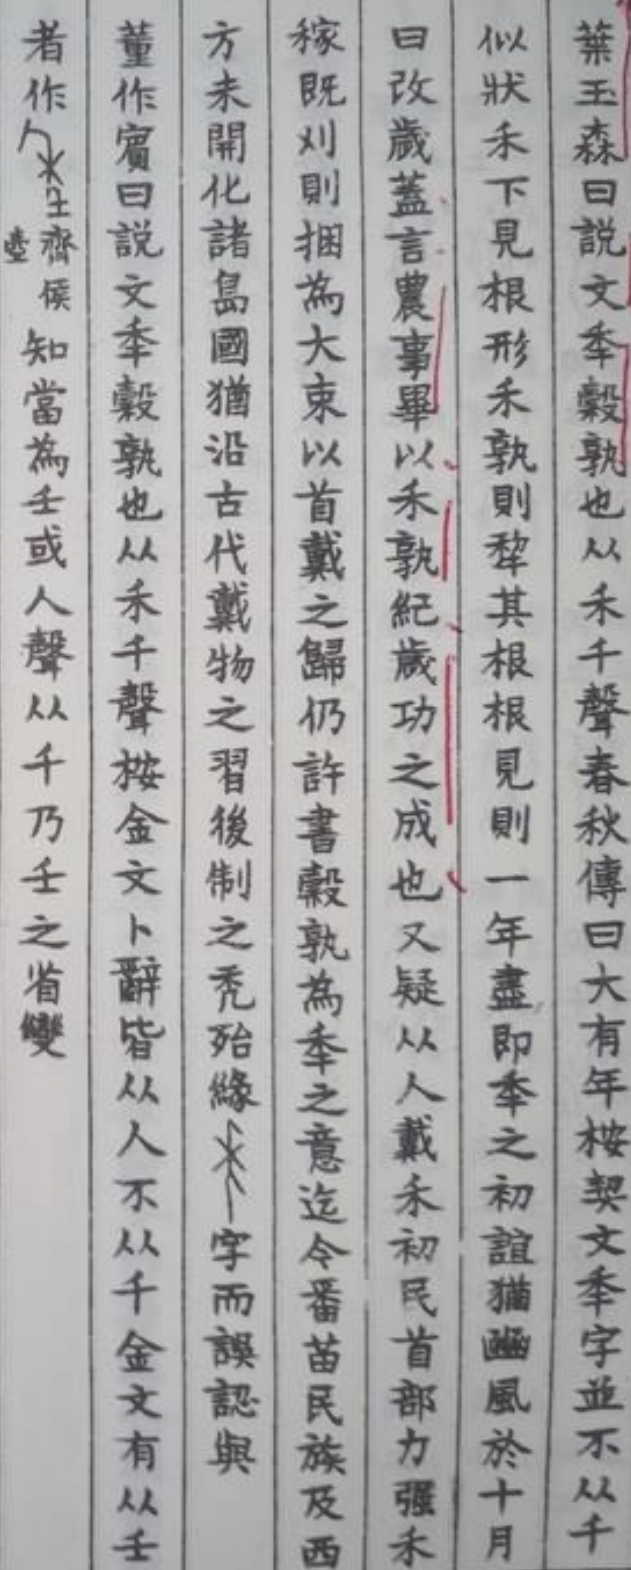 葉玉森曰説文秊穀孰也从禾千聲春秋傳曰大有年桉契文秊字並不从千
似狀禾下見根形禾孰則犂其根根見則一年盡即秊之初誼猶豳風於十月
曰改歲蓋言農事畢以禾孰紀歲功之成也又疑从人戴禾初民首部力强禾
稼既刈則捆為大束以首戴之歸仍許書穀孰為秊之意迄今番苗民族及西
方未開化諸島國猶沿古代戴物之習後制之禿殆緣字而誤認與
董作賓曰説文秊穀孰也从禾千聲桉金文卜辭皆从人不从千金文有从壬
者作齊侯壺知當為壬或人聲从千乃壬之省變